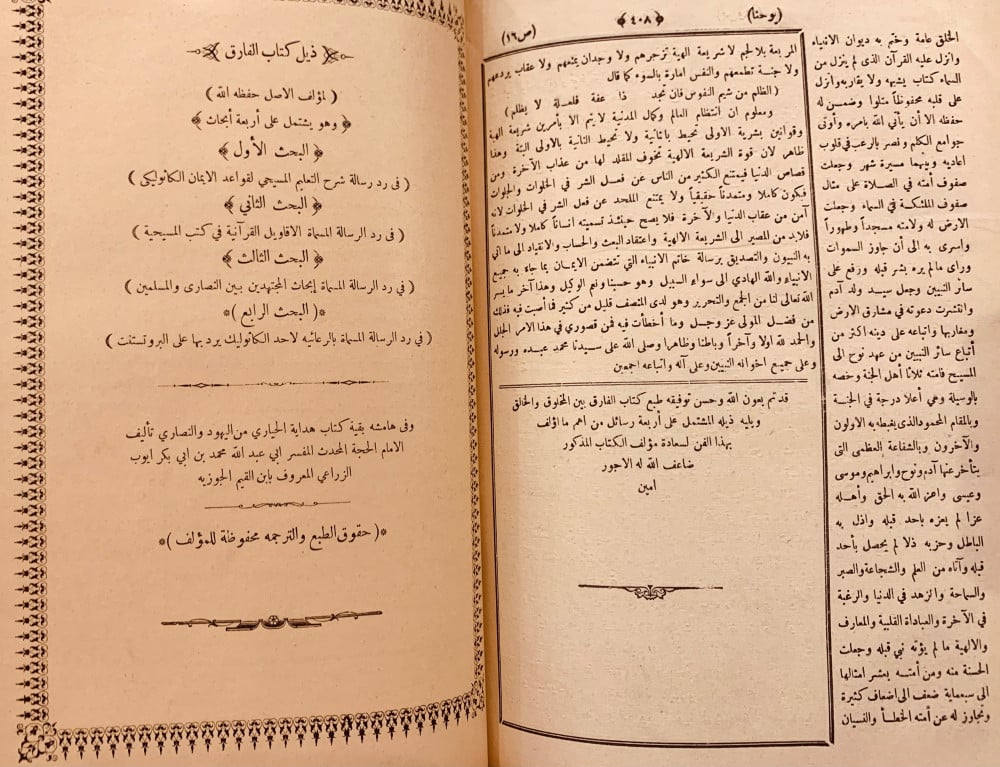 (يوحنا)
﴿ ٤٠٨ ﴾
(ص١٦)
المربعة بلالجم لا شريعة الهية تزجرهم ولا وجدان يمنعهم ولا عقاب يردعهم
ولا جنة تطمعهم والنفس امارة بالسوء كما قال
(الظلم من شيم النفوس فان تجد ذا عفة فلعلة لا يظلم)
ومعلوم ان انتظام العالم وكمال المدنية لا يتم الا بأمرين شريعة الهية
وقوانين بشرية الاولى تحيط بالثانية ولا تحيط الثانية بالاولى البتة وهذا
ظاهر لان قوة الشريعة الالهية تخوف المقلد لها من عذاب الآخرة ومن
قصاص الدنيا فيمتنع الكثير من الناس عن فعل الشر في الخلوات والجلوات
فيكون كاملا ومتمدناً حقيقياً ولا يمتنع الملحد عن فعل الشر في الخلوات لانه
آمن من عقاب الدنيا والآخرة فلا يصح حينئذ تسميته انساناً كاملا ولا متمدناً
فلابد من المصير الى الشريعة الالهية واعتقاد البعث والحساب والانقياد الى ما اتى
به النبيون والتصديق برسالة خاتم الانبياء التي تتضمن الايمان بما جاء به جميع
الانبياء والله الهادي الى سواء السبيل وهو حسبنا ونعم الوكيل وهذا آخر ما يسر
الله تعالى لنا من الجمع والتحرير وهو لدى المنصف قليل من كثير فما أصبت فيه فذلك
من فضل المولى عز وجل وما أخطأت فيه فمن قصوري في هذا الامر الجلل
والحمد لله اولا وآخراً وباطنا وظاهرا وصلى الله على سيدنا محمد عبده ورسوله
وعلى جميع اخوانه النبيين وعلى آله واتباعه اجمعين
قد تم بعون الله وحسن توفيقه طبع كتاب الفارق بين المخلوق والخالق
ويليه ذيله المشتمل على أربعة رسائل من اهم ما أؤلف
بهذا الفن لسعادة مؤلف الكتاب المذكور
ضاعف الله له الاجور
امين
الخلق عامة وختم به ديوان الانبياء
وانزل عليه القرآن الذى لم ينزل من
السماء كتاب يشبهه ولا يقاربه وأنزل
على قلبه محفوظاً متلوا وضمن له
حفظه الا أن يأتي الله بامره وأوتى
جوامع الكلم ونصر بالرعب في قلوب
اعاديه وبينهما مسيرة شهر وجعلت
صفوف أمته في الصلاة على مثال
صفوف الملئكة في السماء وجعلت
الارض له ولامته مسجداً وطهوراً
واسرى به الى أن جاوز السموات
ورأى مالم يره بشر قبله ورفع على
سائر النبيين وجعل سيد ولد آدم
وانتشرت دعوته في مشارق الارض
ومغاربها واتباعه على دينه اكثر من
أتباع سائر النبيين من عهد نوح الى
المسيح فامته ثلثا أهل الجنة وخصه
بالوسيلة وهي أعلا درجة في الجنة
وبالمقام المحمود الذى يغبطه به الاولون
والآخرون وبالشفاعة العظمى التى
يتأخر عنها آدم ونوح وابراهيم وموسى
وعيسى واعز الله به الحق وأهله
عزا لم يعزه باحد قبله واذل به
الباطل وحزبه ذلا لم يحصل بأحد
قبله وآتاه من العلم والشجاعة والصبر
والسماحة والزهد في الدنيا والرغبة
في الآخرة والعباداة القلبية والمعارف
والالهية ما لم يؤته نبي قبله وجعلت
الحسنة منه ومن أمته بعشر امثالها
الى سبعماية ضعف الى اضعاف كثيرة
وتجاوز له عن أمته الخطأ والنسيان
ذيل كتاب الفارق
(لمؤلف الاصل حفظه الله)
﴿ وهو يشتمل على أربعة أبحاث ﴾
﴿ البحث الأول ﴾
(فى رد رسالة شرح التعليم المسيحي لقواعد الايمان الكاثوليكى)
﴿ البحث الثاني ﴾
(فى رد الرسالة المسماة الاقاويل القرآنية في كتب المسيحية)
﴿ البحث الثالث ﴾
(في رد الرسالة المسماة إبحاث المجتهدين بين النصارى والمسلمين)
*(البحث الرابع)*
(في رد الرسالة المسماة بالرعائيه لاحد الكاثوليك يرد بها على البروتستنت)
وفى هامشه بقية كتاب هداية الحياري من اليهود والنصاري تأليف
الامام الحجة المحدث المفسر ابي عبد الله محمد بن ابي بكر ايوب
الزراعي المعروف بابن القيم الجوزيه
*(حقوق الطبع والترجمه محفوظة للمؤلف)*